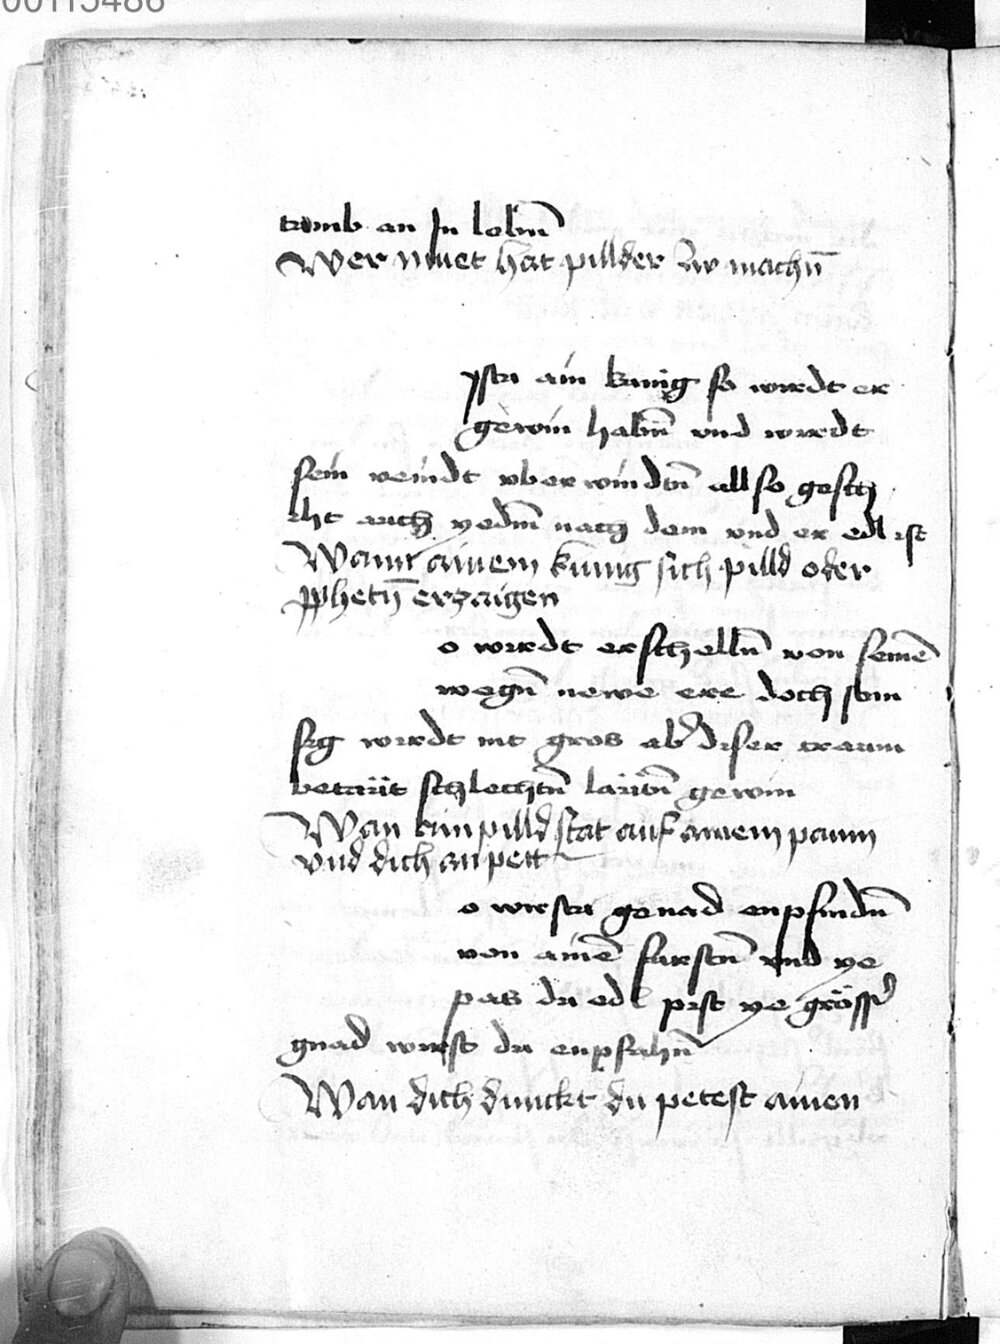 00115486
trumb an In lobn̄
Wer muet hat pillder zw machn̄
ystu ain kunig so wirdt er
gewin habn̄ vnd wirdt
sein veindt vberwindtn̄ allso gesch
iht auch yedm̄ nach dem vnd er edl ist
Wann ainem kunig sich pilld oder
pphetn̄ erzaigen
o wirdt erschelln̄ von seinē
wegn̄ newe ere doch sein
sig wirdt nit gros ab diser traum
betrüt schlechtn̄ gewin
Wan ain pilld stat auf ainem paum
vnd dich an pett
o wirstu genad enpfindn̄
von ainē furstn̄ vnd ye
pas du edl pist ye grösser
gnad wirst du enpfahn̄
Wan dich dunckt du petest ainen